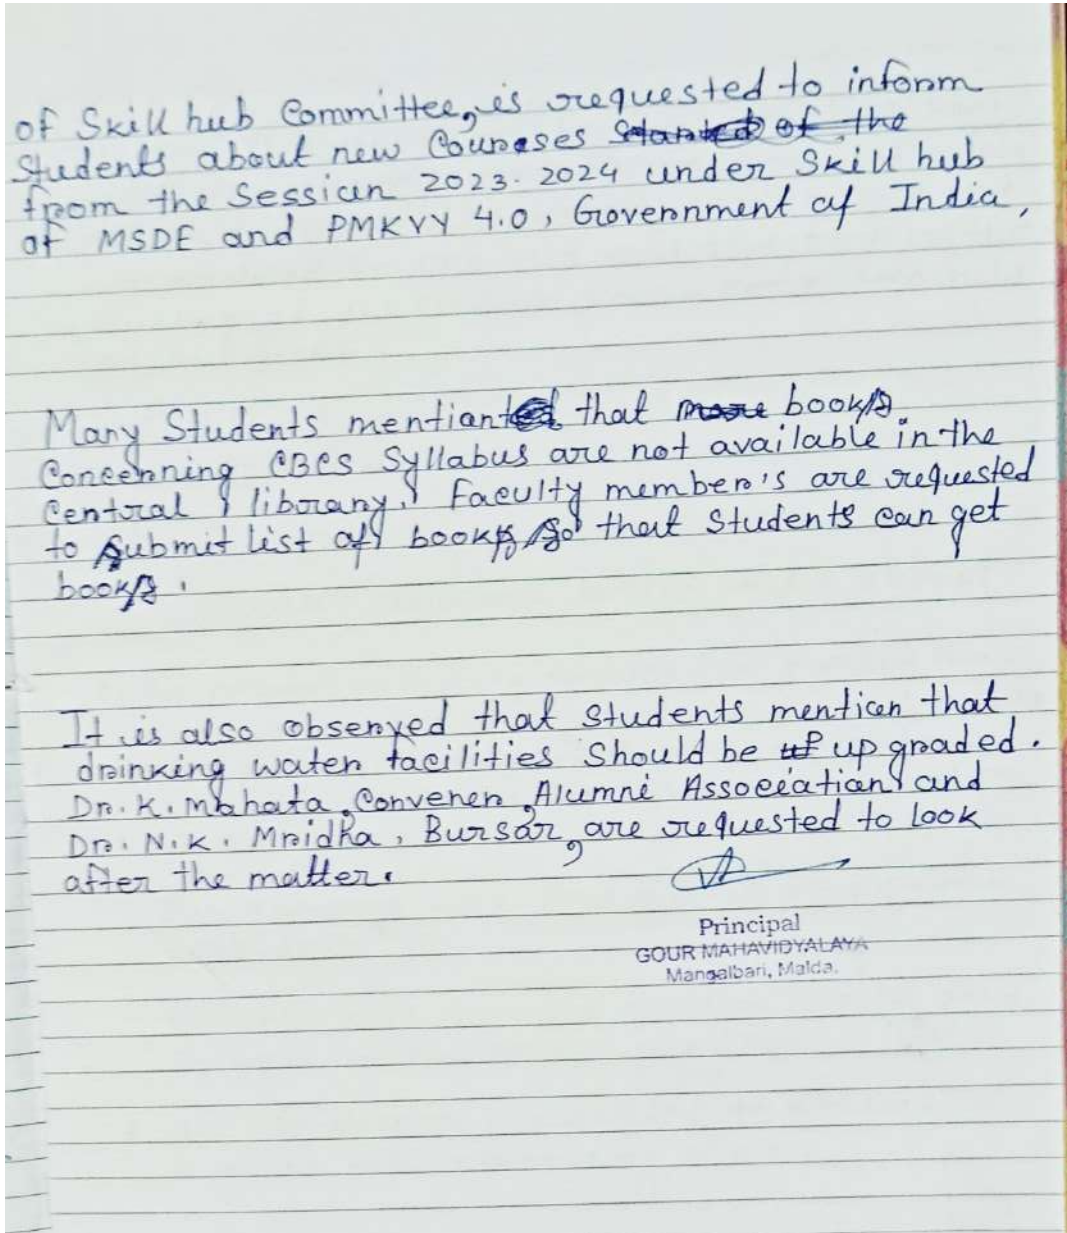 of Skill hub Committee, is requested to inform
Students about new Courses Started of the
from the Session 2023-2024 under Skill hub
of MSDE and PMKVY 4.0, Government of India,
Many Students mentioned that more books
Concerning CBCS Syllabus are not available in the
Central library. Faculty member's are requested
to Submit list of books so that Students can get
books.
It is also observed that students mention that
drinking water facilities Should be up up graded.
Dr. K. Mahata, Convener, Alumni Association and
Dr. N.K. Mridha, Bursar, are requested to look
after the matter.
Principal
GOUR MAHAVIDYALAYA
Mangalbari, Malda.